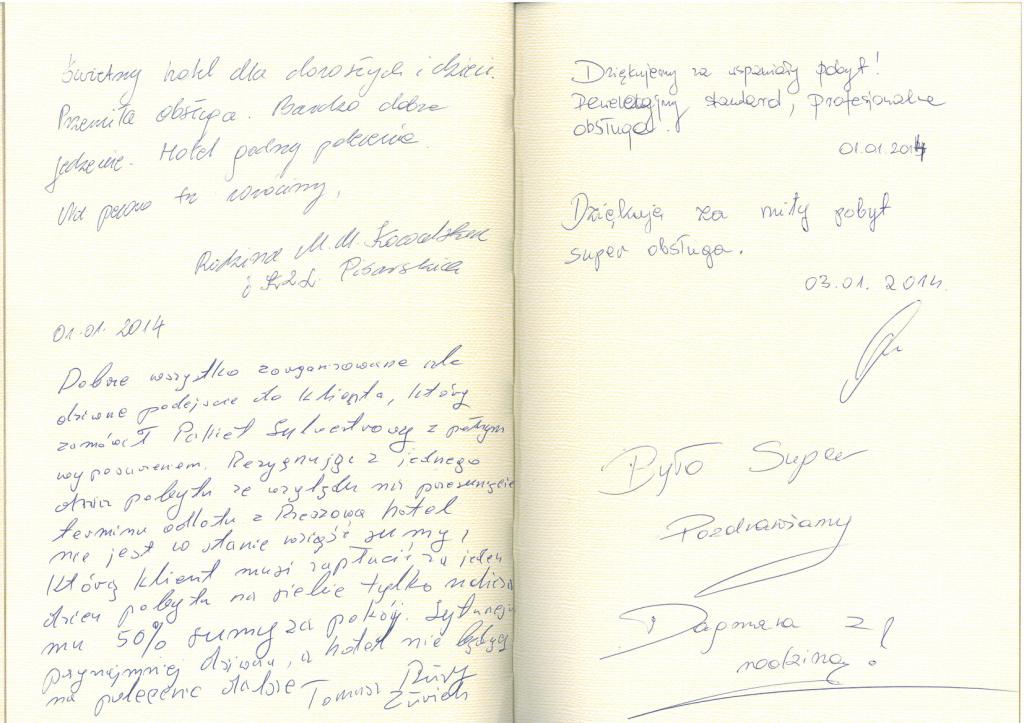 Świetny hotel dla dorosłych i dzieci.
Przemiła obsługa. Bardzo dobre
jedzenie. Hotel godny polecenia.
Na pewno tu wrócimy,
Rodzina M.M.
i Pisarskich
01.01.2014
Dobrze wszystko zorganizowane ale
dziwne podejście do klienta, który
zamówił Pakiet Sylwestrowy z pełnym
wyposażeniem. Rezygnując z jednego
dnia pobytu ze względu na przesunięcie
terminu odlotu z Rzeszowa hotel
nie jest w stanie wziąść sumy,
którą klient musi zapłacić za jeden
dzień pobytu na siebie tylko nalicza
mu 50% sumy za pokój. Sytuacja
przynajmniej dziwna, a hotel nie
na polecenie dalsze Tomasz
Zürich
Dziękujemy za wspaniały pobyt!
Rewelacyjny standard, profesjonalna
obsługa.
01.01.2014
Dziękuję za miły pobyt
super obsługa.
03.01.2014.
Było Super
Pozdrawiamy
Dagmara z
rodziną!